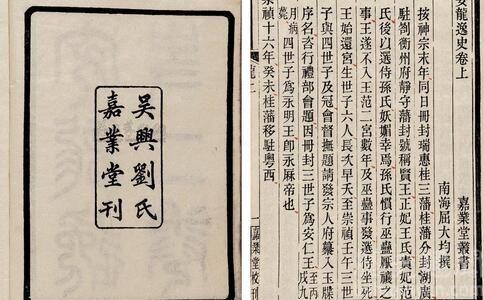 吳興劉氏
嘉業堂刊
安龍逸史卷上
嘉業堂叢書
南海屈大均撰
按神宗末年同日冊封瑞惠桂三藩桂藩分封湖廣
駐劄衡州府靜守藩封號稱賢王正妃王氏貴妃范
氏後以選侍孫氏妖媚幸焉孫氏慣行巫蠱厭禳之
事王遂不入王范二宮數年及巫蠱事發選侍坐死
王始還宮生世子六人長次早夭至崇禎壬午三世
子與四世子及冠會督撫題請發宗人府纂入玉牒
序名咨行禮部會題因冊封三世子為安仁王至丙戌九
月病薨四世子為永明王即永厤帝也
崇禎十六年癸未桂藩移駐粵西
一 嘉業堂校刊